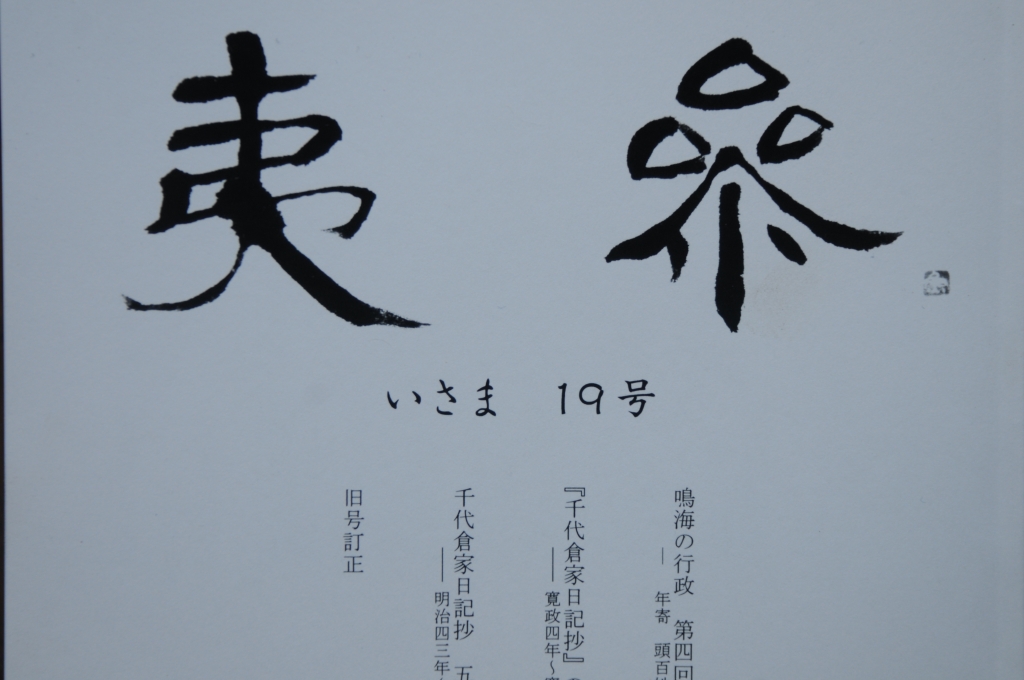 夷參
いさま 19号
鳴海の行政 第四回
― 年寄 頭百
『千代倉家日記抄』
―― 寛政四年～
千代倉家日記抄 五
―― 明治四三年
旧号訂正